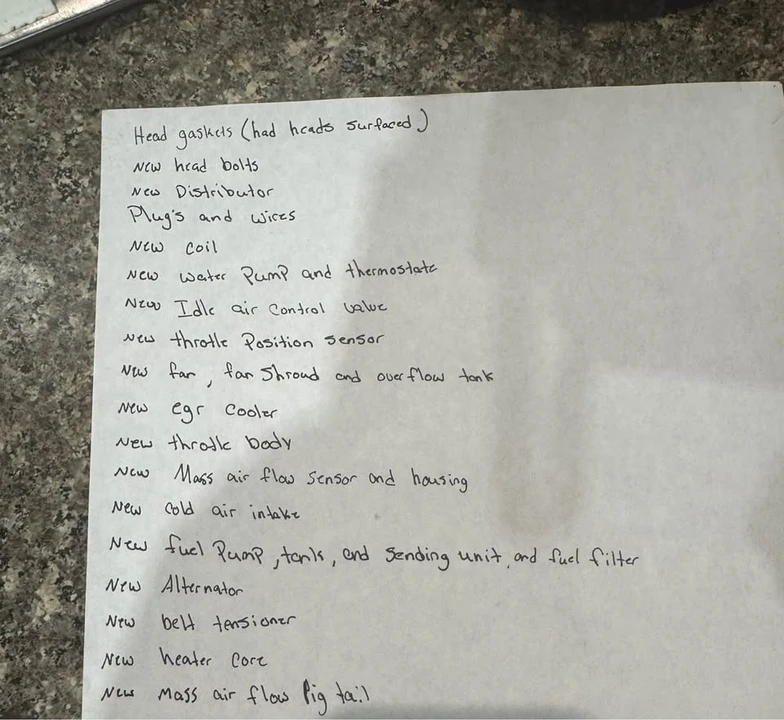 Head gaskets (had heads surfaced)
New head bolts
New Distributor
Plug's and wires
New coil
New water Pump and thermostate
New Idle air control valve
New throtle Position sensor
New fan, fan Shroud and overflow tank
New egr cooler
New throtle body
New Mass air flow sensor and housing
New cold air intake
New fuel Pump, tank, and sending unit, and fuel filter
New Alternator
New belt tensioner
New heater core
New Mass air flow Pig tail